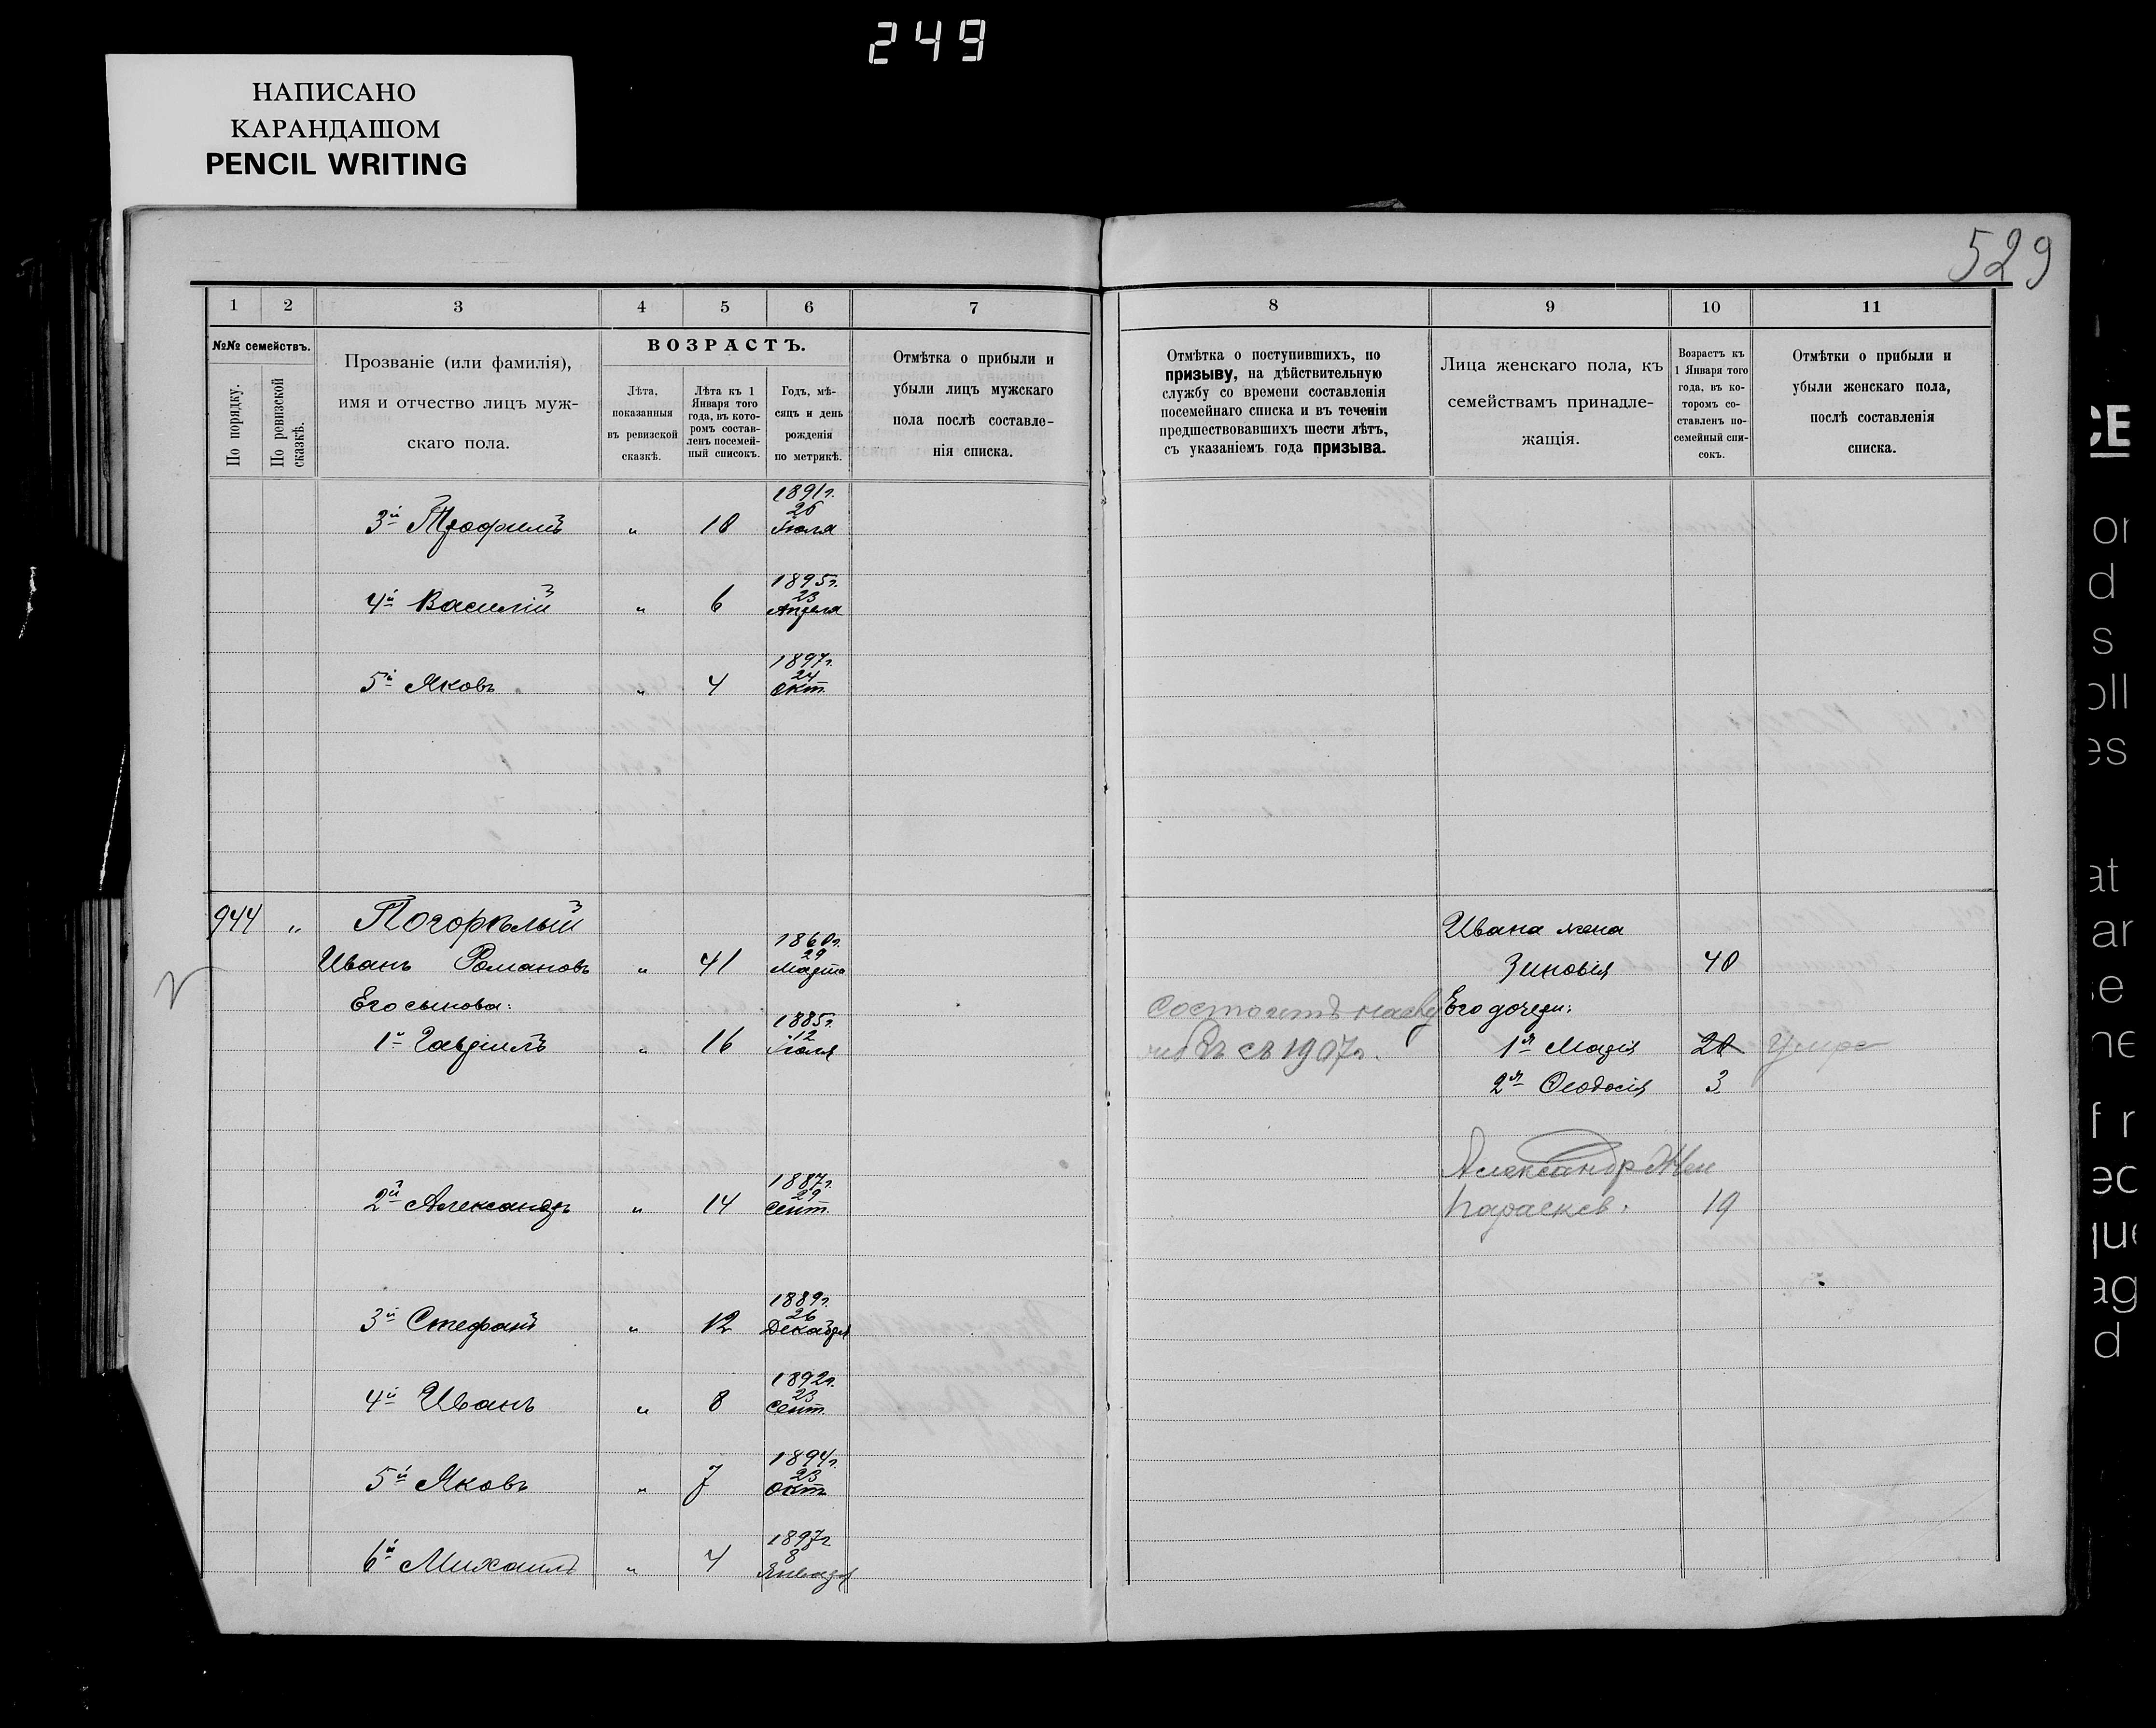 249
НАПИСАНО
КАРАНДАШОМ
PENCIL WRITING
529
1 2 3 4 5 6 7
№№ семействъ.
По порядку.
По ревизской сказкѣ.
Прозваніе (или фамилія),
имя и отчество лицъ муж-
скаго пола.
ВОЗРАСТЪ.
Лѣта,
показанныя
въ ревизской
сказкѣ.
Лѣта къ 1
Января того
года, въ кото-
ромъ состав-
ленъ посемей-
ный списокъ.
Годъ, мѣ-
сяцъ и день
рожденія
по метрикѣ.
Отмѣтка о прибыли и
убыли лицъ мужскаго
пола послѣ составле-
нія списка.
8 9 10 11
Отмѣтка о поступившихъ, по
призыву, на дѣйствительную
службу со времени составленія
посемейнаго списка и въ теченіи
предшествовавшихъ шести лѣтъ,
съ указаніемъ года призыва.
Лица женскаго пола, къ
семействамъ принадле-
жащія.
Возрастъ къ
1 Января того
года, въ ко-
торомъ со-
ставленъ по-
семейный спи-
сокъ.
Отмѣтки о прибыли и
убыли женскаго пола,
послѣ составленія
списка.
1891г.
26
3й Трофимъ " 10 Іюля
1895г.
23
4й Василій " 6 Апреля
1897г.
24
5й Яковъ " 4 Окт.
944 " Погорѣлый
1860г.
29
Иванъ Романовъ " 41 Марта
Его сынова:
1885г.
12
1й Гавріилъ " 16 Іюля
1887г.
29
2й Александръ " 14 Сент.
1889г.
26
3й Стефанъ " 12 Декабря
1892г.
23
4й Иванъ " 8 Сент.
1894г.
23
5й Яковъ " 7 Окт.
1897г
8
6й Михаилъ " 4 Января
Состоитъ
съ 1907г.
Ивана жена
Зиновія 40
Его дочери:
1я Марія 20 Умре
2я Феодосія 3
Александр Жен
Параскев. 19